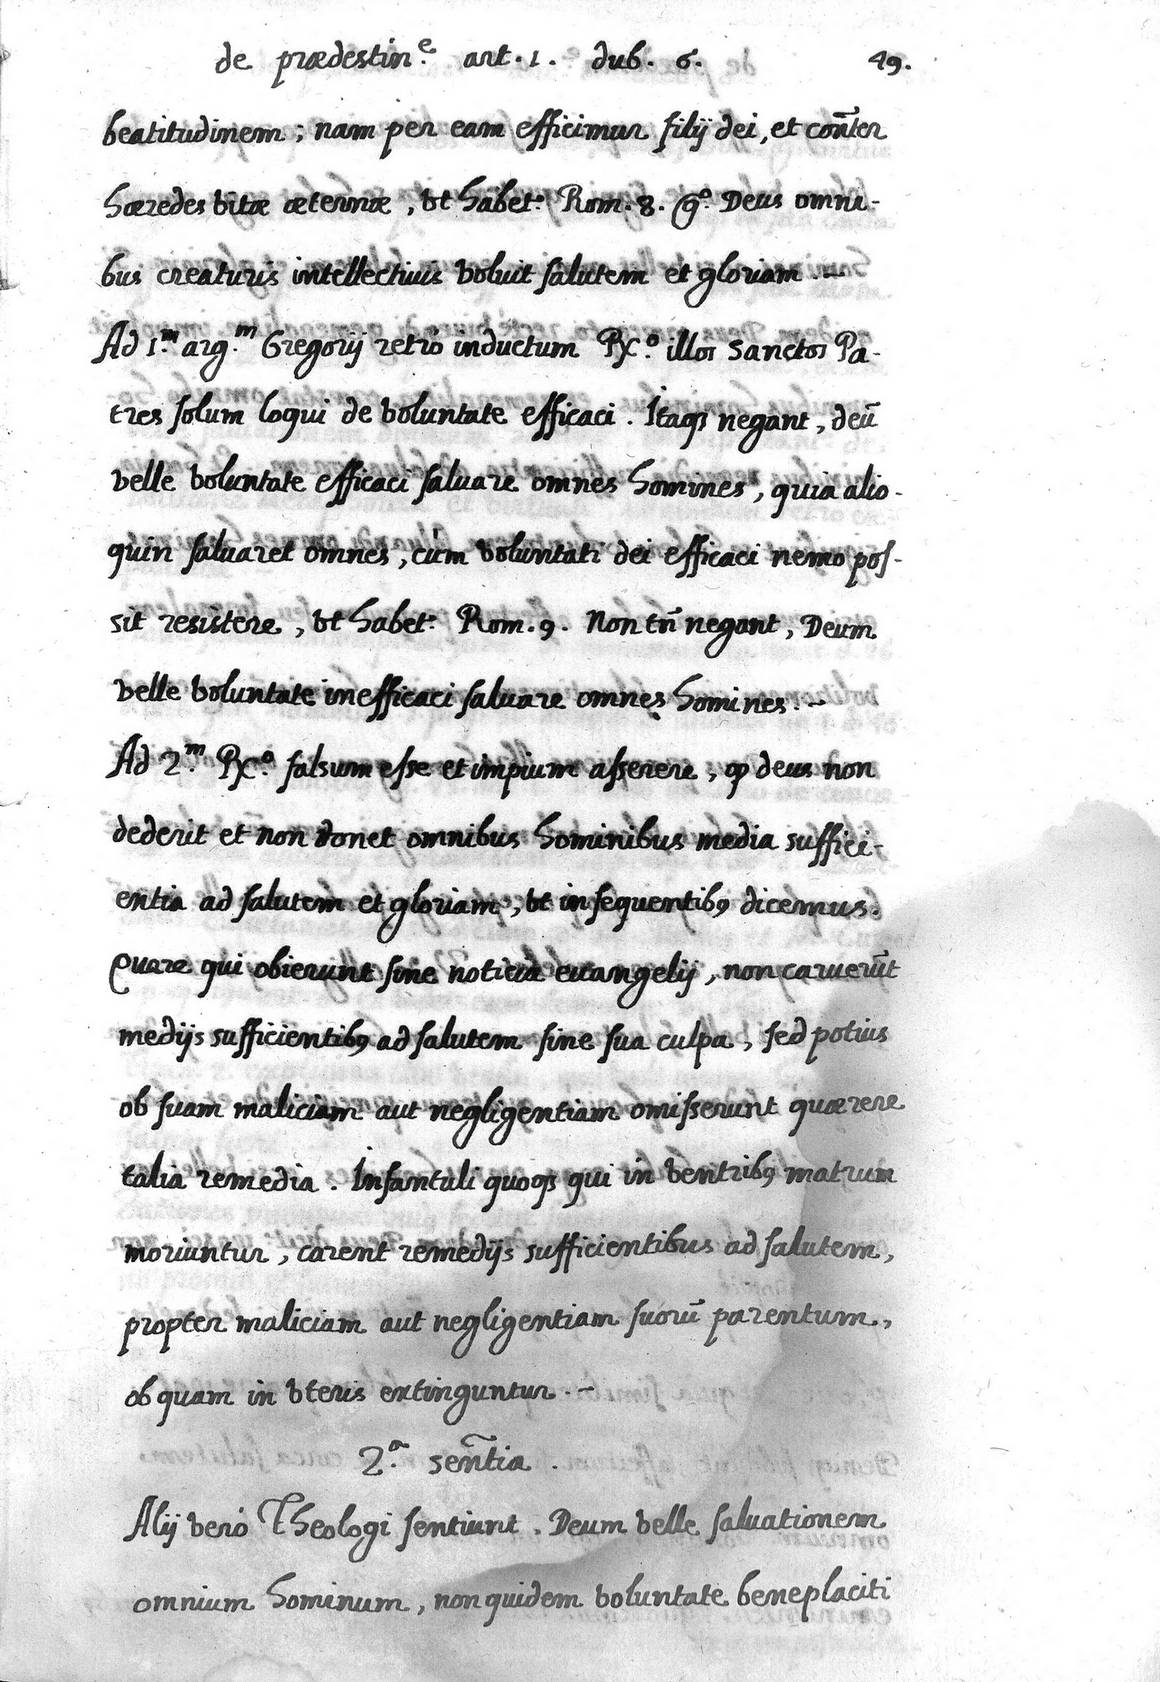 de prædestin.e art. 1. dub. 6. 49.
beatitudinem; nam per eam efficimur filij dei, et cōñter
hæredes vitæ æternæ, vt habet.r Rom. 8. g.o Deus omni-
bus creaturis intellectiuis voluit salutem et gloriam.-
Ad 1.m arg.m Gregorij retrò inductum R.o illos sanctos Pa-
tres solum loqui de voluntate efficaci. Itaqꝫ negant, deū
velle voluntate efficaci saluare omnes homines, quia alio-
quin saluaret omnes, cùm voluntati dei efficaci nemo pos-
sit resistere, vt habet.r Rom. 9. Non tñ negant, Deum
velle voluntate inefficaci saluare omnes homines.-
Ad 2.m R.o falsum esse et impium asserere, ꝙ deus non
dederit et non donet omnibus hominibus media suffici-
entia ad salutem et gloriam, vt in sequentibꝰ dicemus.
Quare qui obierunt sine noticia euangelij, non caruerūt
medijs sufficientibꝰ ad salutem sine sua culpa, sed potius
ob suam maliciam aut negligentiam omisserunt quærere
talia remedia. Infantuli quoqꝫ qui in ventribꝰ matrum
moriuntur, carent remedijs sufficientibus ad salutem,
propter maliciam aut negligentiam suorū parentum,
ob quam in vteris extinguntur.-
2.a señtia.
Alij verò Theologi sentiunt. Deum velle saluationem
omnium hominum, non quidem voluntate beneplaciti